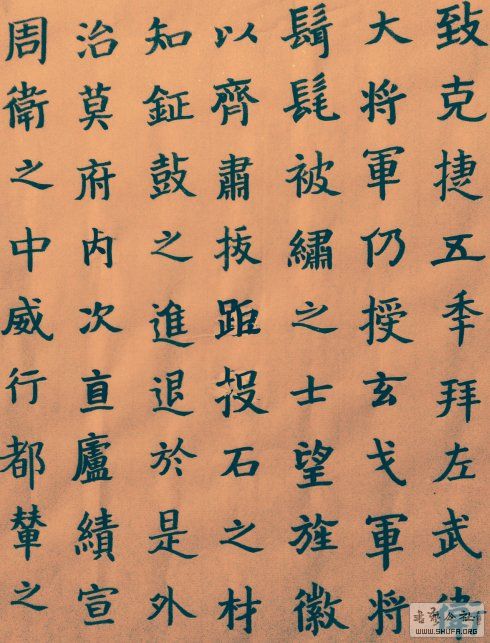 致克捷五年拜左武
大将軍仍授玄戈軍将
髶髦被繡之士望旌徽
以齊肅拔距投石之材
知鉦鼓之進退於是外
治莫府内次直廬績宣
周衛之中威行都輦之
WWW.SHUFA.ORG